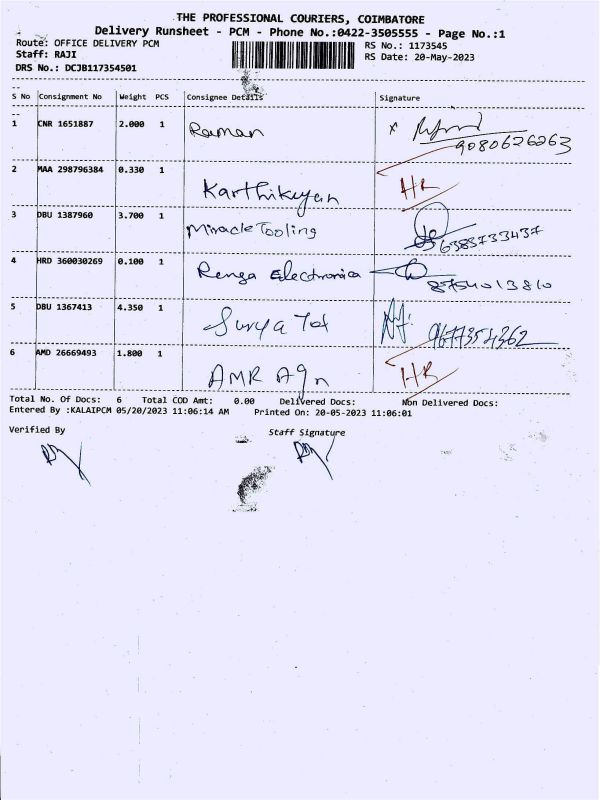 THE PROFESSIONAL COURIERS, COIMBATORE
Delivery Runsheet - PCM - Phone No.:0422-3505555 - Page No.:1
Route: OFFICE DELIVERY PCM
RS No.: 1173545
Staff: RAJI
RS Date: 20-May-2023
DRS No.: DCJB117354501
S No Consignment No Weight PCS Consignee Details Signature
1 CNR 1651887 2.000 1 Raman x 9080626263
2 MAA 298796384 0.330 1 Karthikeyan HR
3 DBU 1387960 3.700 1 Miracle Tooling 6383733437
4 HRD 360030269 0.100 1 Renga Electronica 8754013810
5 DBU 1367413 4.350 1 Surya 9677354362
6 AMD 26669493 1.800 1 AMR HR
Total No. Of Docs: 6 Total COD Amt: 0.00 Delivered Docs: Non Delivered Docs:
Entered By :KALAIPCM 05/20/2023 11:06:14 AM Printed On: 20-05-2023 11:06:01
Verified By Staff Signature